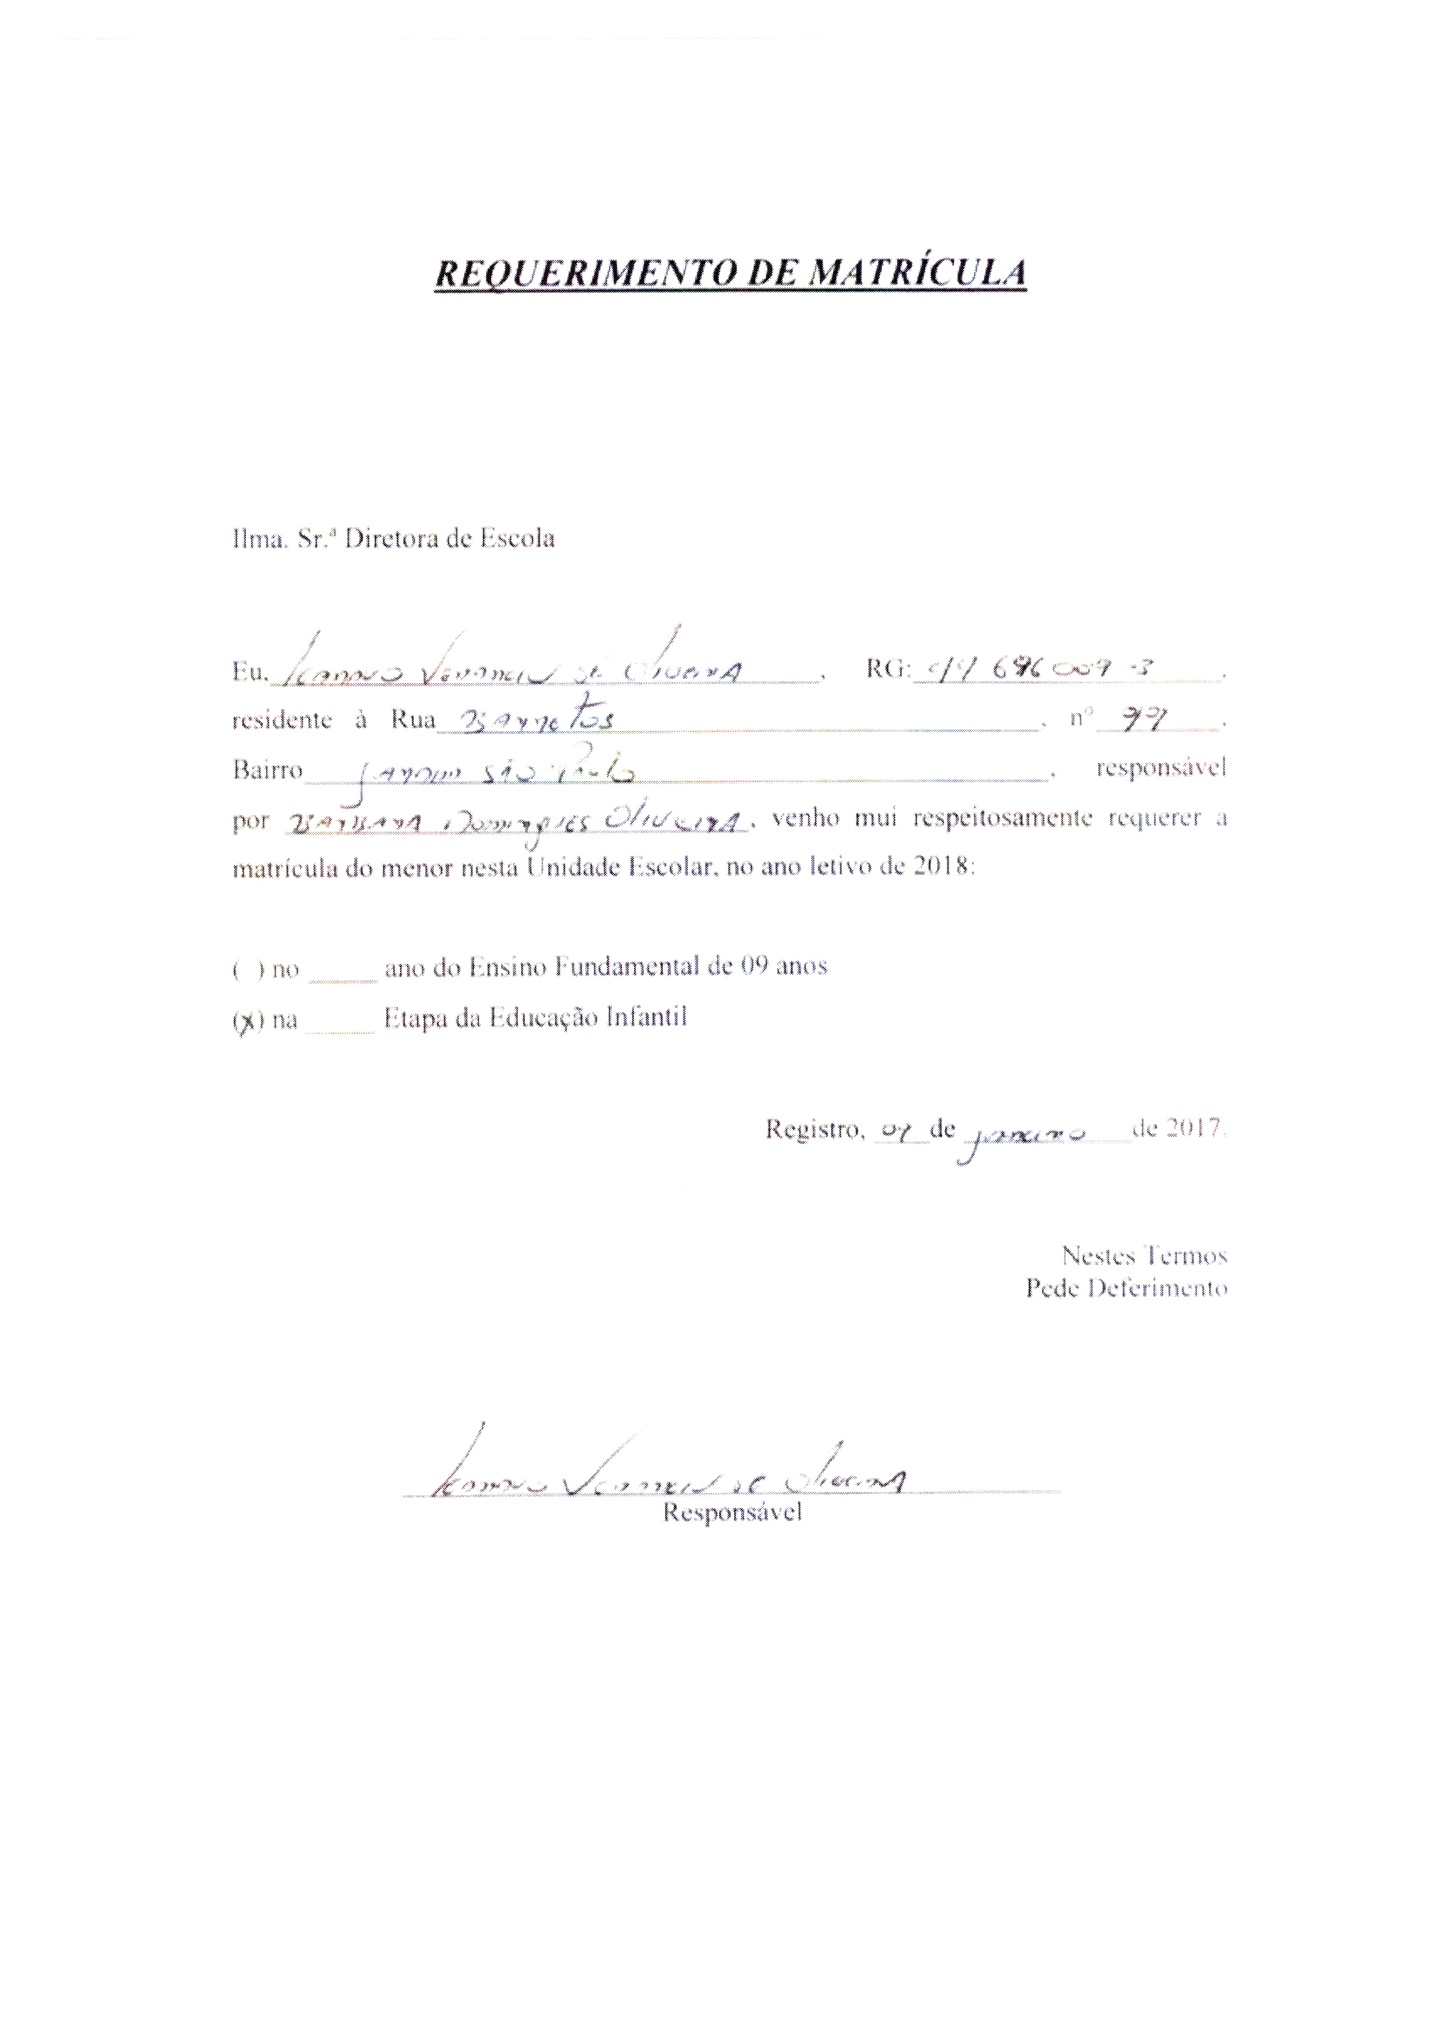 REQUERIMENTO DE MATRÍCULA
Ilma. Sr.ª Diretora de Escola
Eu, Leandro de Oliveira, RG:
residente à Rua Barretos, nº
Bairro Jardim São Paulo, responsável
por Barbara Domingues Oliveira, venho mui respeitosamente requerer a
matrícula do menor nesta Unidade Escolar, no ano letivo de 2018:
( ) no ______ ano do Ensino Fundamental de 09 anos
(x) na ______ Etapa da Educação Infantil
Registro, de janeiro de 2017.
Nestes Termos
Pede Deferimento
Leandro de Oliveira
Responsável